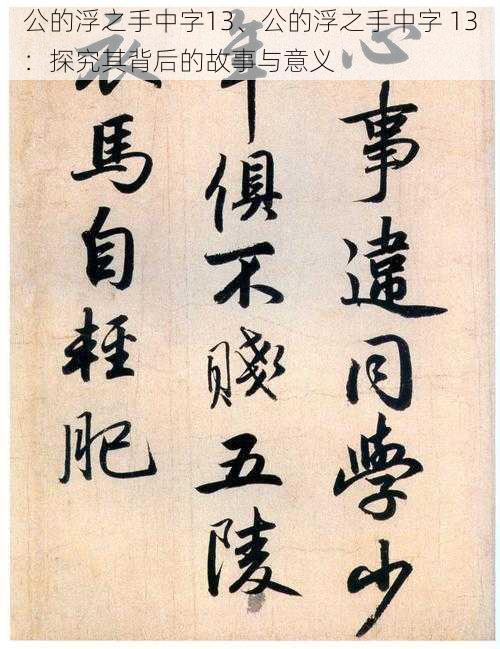 公的浮之手中字13、公的浮之手中字 13
：探究其背后的故事与意义
心事違同學少
年俱不賤五陵
衣馬自輕肥